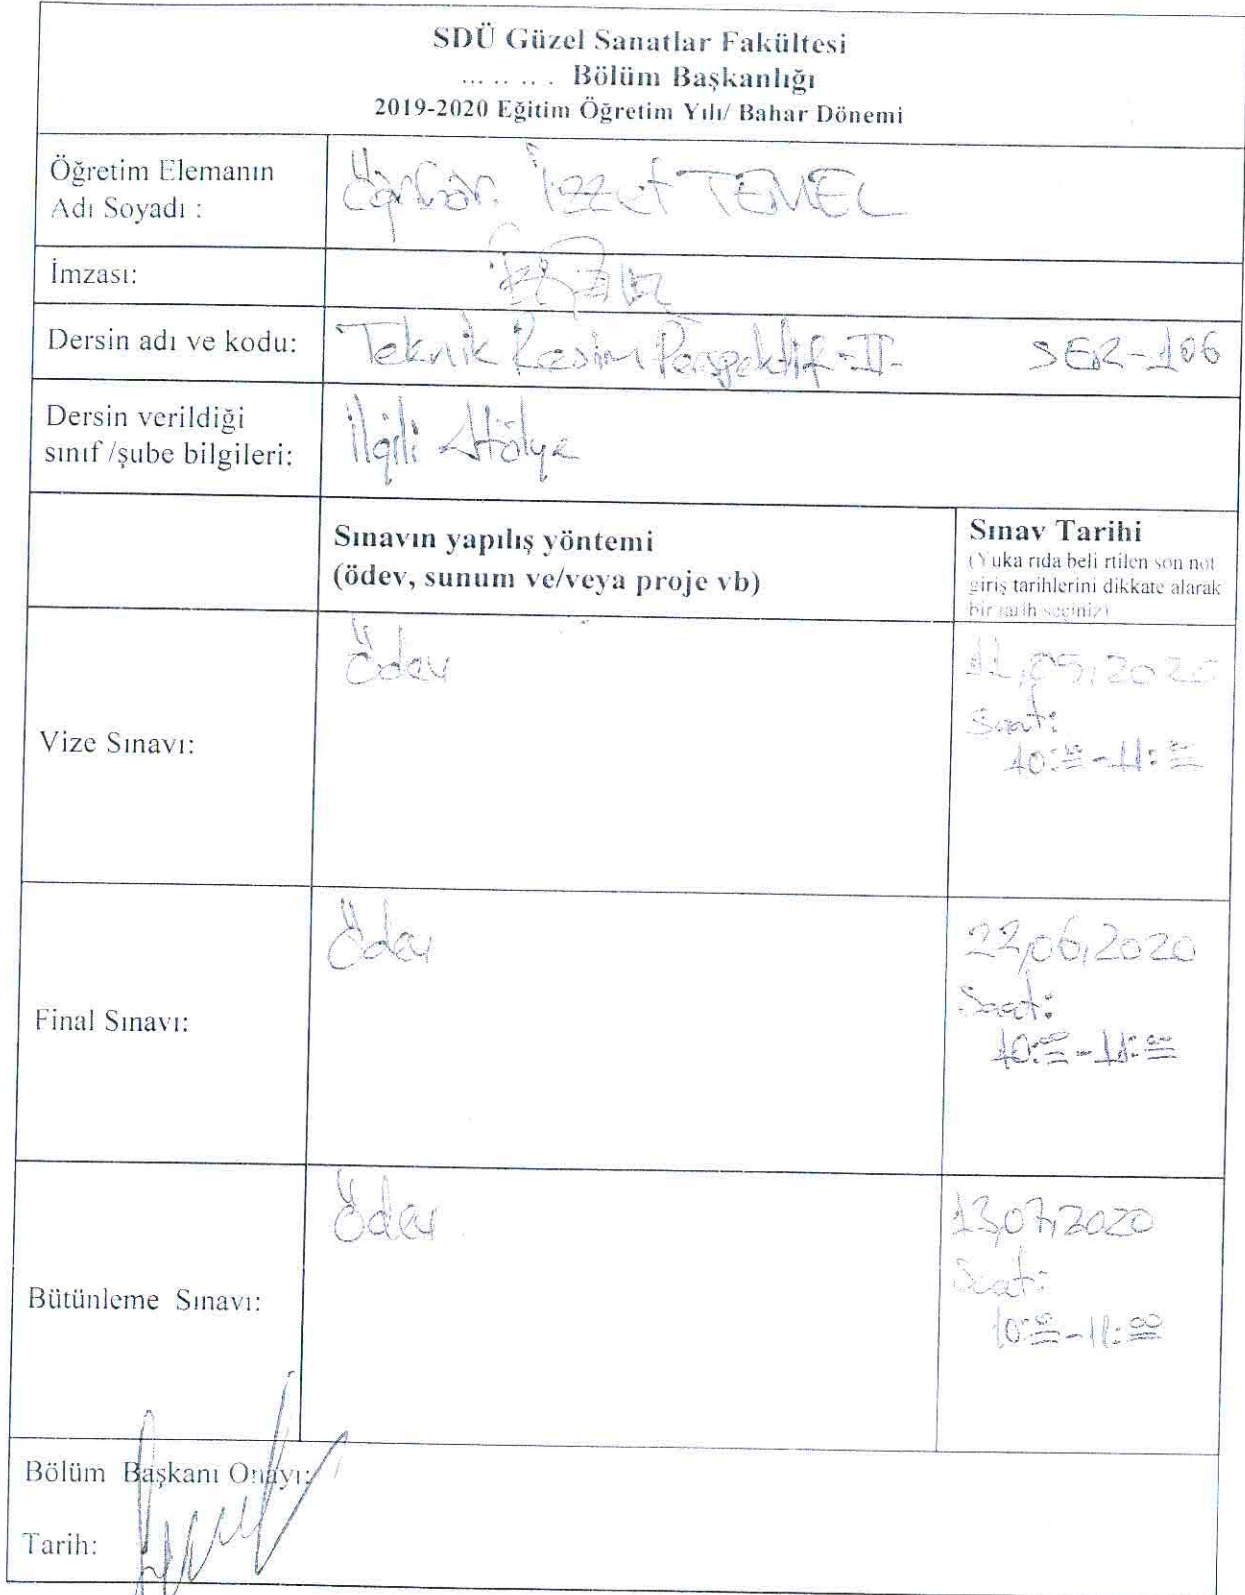 SDÜ Güzel Sanatlar Fakültesi
... .. .. . Bölüm Başkanlığı
2019-2020 Eğitim Öğretim Yılı/ Bahar Dönemi
Öğretim Elemanın
Adı Soyadı :
İzzet TEMEL
İmzası:
Dersin adı ve kodu:
Teknik Resim Perspektif-II- SER-106
Dersin verildiği
sınıf /şube bilgileri:
İlgili Atölye
Sınavın yapılış yöntemi
(ödev, sunum ve/veya proje vb)
Sınav Tarihi
(Yuka rıda beli rtilen son not
giriş tarihlerini dikkate alarak
bir tarih seçiniz)
Vize Sınavı:
Ödev
05.2020
Saat:
10:00-11:00
Final Sınavı:
Ödev
22.06.2020
Saat:
10:00-11:00
Bütünleme Sınavı:
Ödev
13.07.2020
Saat:
10:00-11:00
Bölüm Başkanı Onayı:
Tarih: